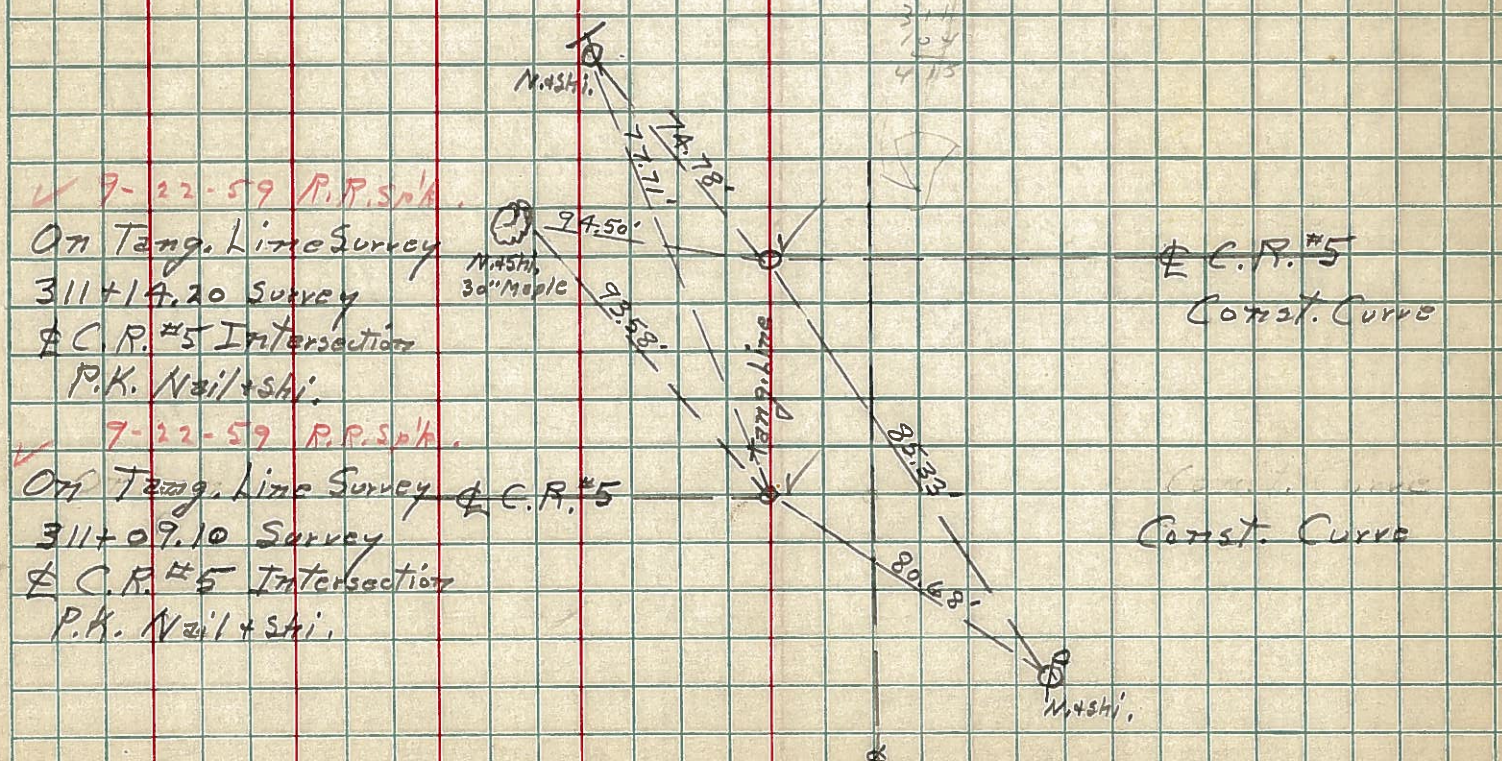 ✓ 9-22-59 R.R.Spk.
On Tang. Line Survey
311+14.20 Survey
℄ C.R. #5 Intersection
P.K. Nail + Shi.
✓ 9-22-59 R.R.Spk.
On Tang. Line Survey
311+09.10 Survey
℄ C.R. #5 Intersection
P.K. Nail + Shi.
N.+Shi.
77.71'
74.78'
94.50'
N.+Shi.
30" Maple
93.58'
Tang. Line
℄ C.R. #5
℄ C.R. #5
Const. Curve
85.33'
Const. Curve
80.68'
N.+Shi.